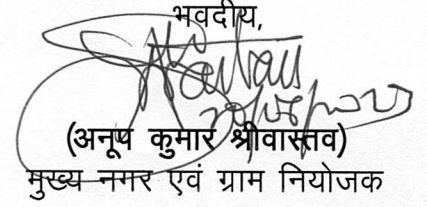 भवदीय,
(अनूप कुमार श्रीवास्तव)
मुख्य नगर एवं ग्राम नियोजक